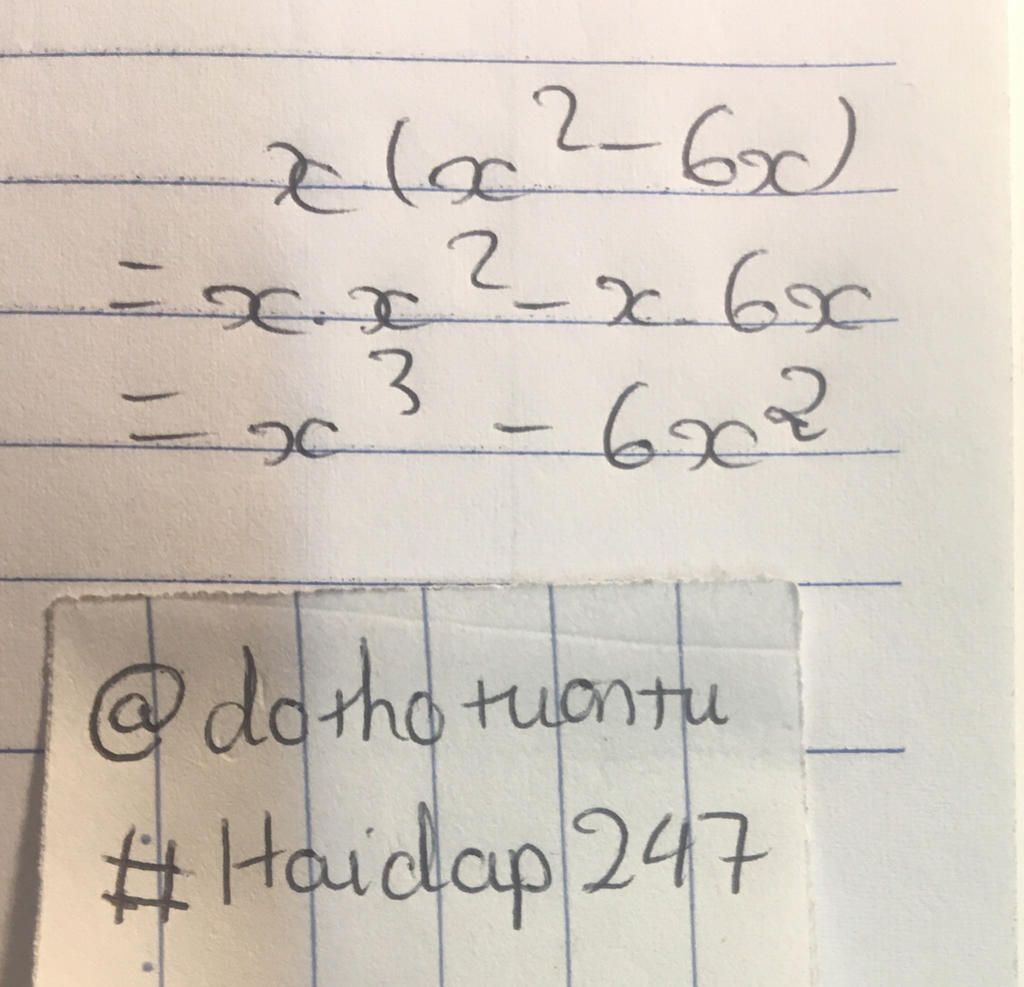 x(x²-6x)
= x.x² - x.6x
= x³ - 6x²
@dothotuontu
#Haidap247